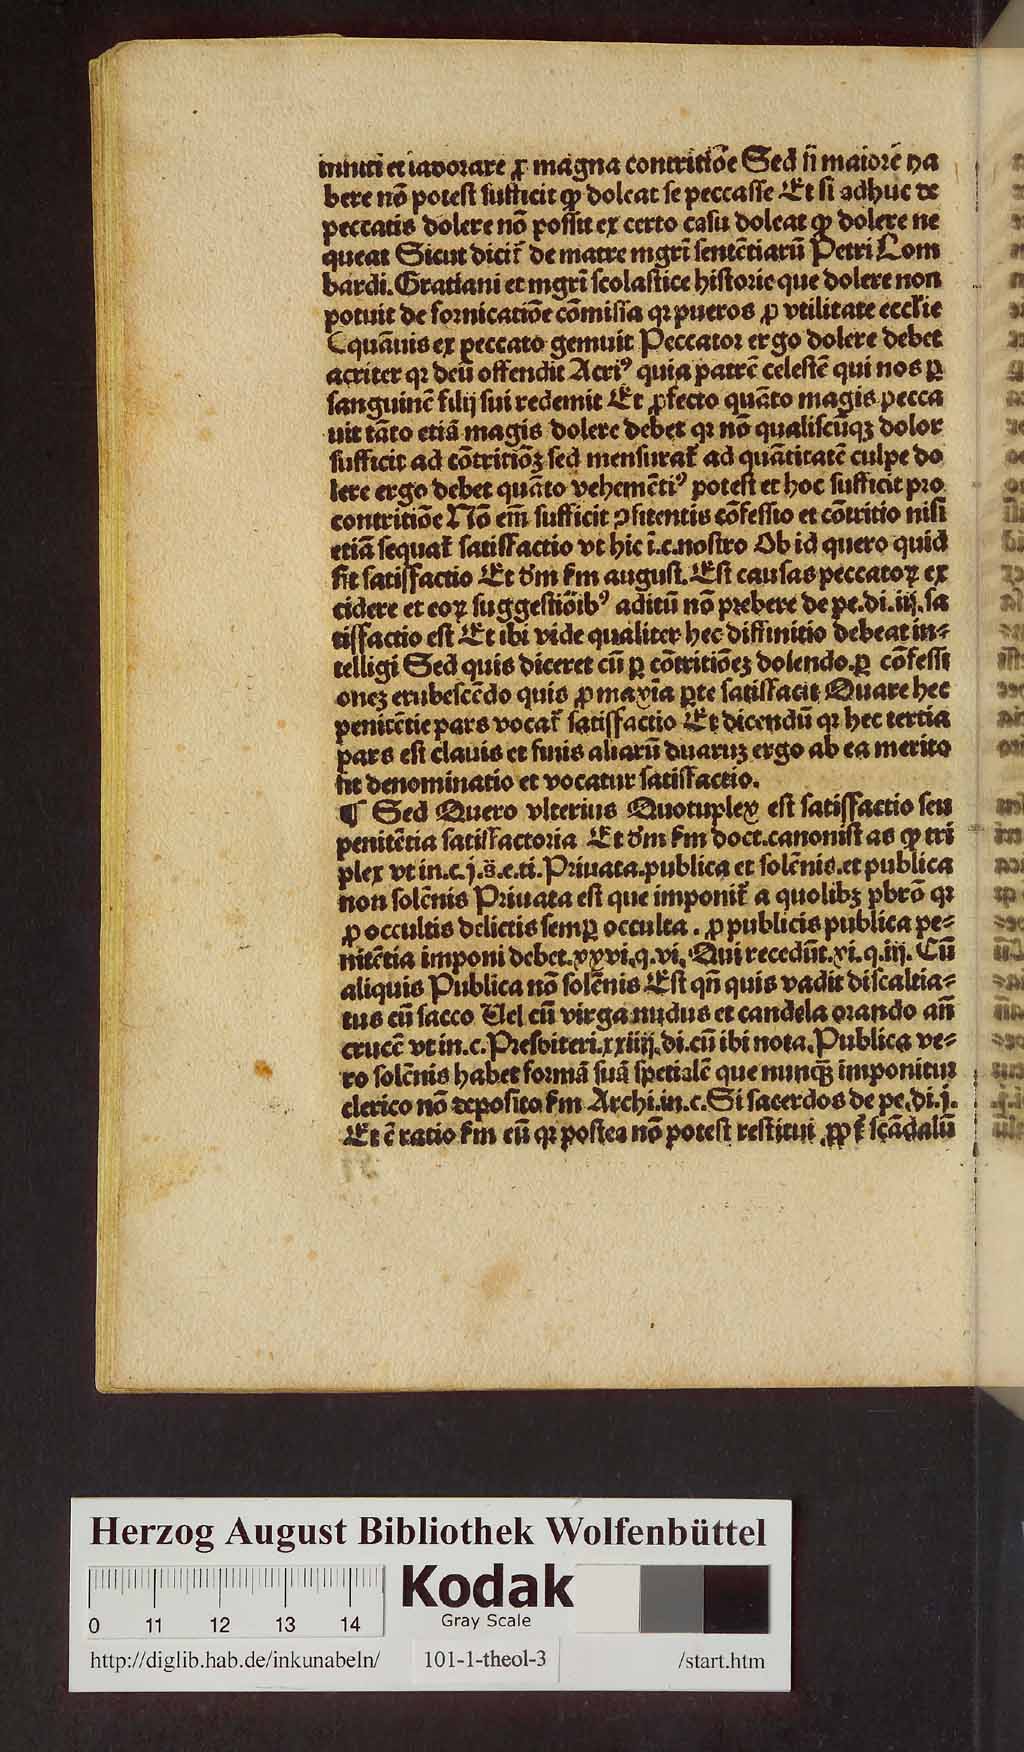 inniti et laborare ꝓ magna contritiōe Sed ſi maiorē ha
bere nō poteſt ſufficit ꝙ doleat ſe peccaſſe Et ſi adhuc de
peccatis dolere nō poſſit ex certo caſu doleat ꝙ dolere ne
queat Sicut dicit᷑ de matre mgrī ſentētiarū Petri Lom
bardi. Gratiani et mgrī ſcolaſtice hiſtorie que dolere non
potuit de fornicatiōe cōmiſſa qꝛ pueros ꝓ vtilitate eccl̓ie
quāuis ex peccato gemuit Peccator ergo dolere debet
acriter qꝛ deū offendit Acriꝰ quia patrē celeſtē qui nos ꝑ
ſanguinē filij ſui redemit Et ꝓfecto quāto magis pecca
uit tāto etiā magis dolere debet qꝛ nō qualiſcūqꝫ dolor
ſufficit ad cōtritiōꝫ ſed menſurat᷑ ad quātitatē culpe do
lere ergo debet quāto vehemētiꝰ poteſt et hoc ſufficit pro
contritiōe Nō em̄ ſufficit ꝯfitentis cōfeſſio et cōtritio niſi
etiā ſequat᷑ ſatiſfactio vt hic ī.c.noſtro Ob id quero quid
ſit ſatiſfactio Et d̓m ẜm auguſt. Eſt cauſas peccatoꝝ ex
cidere et eoꝝ ſuggeſtiōibꝰ aditū nō prebere de pe.di.iij.ſa
tiſfactio eſt Et ibi vide qualiter hec diffinitio debeat in⸗
telligi Sed quis diceret cū ꝑ cōtritiōeꝫ dolendo.ꝑ cōfeſſi
oneꝫ erubeſcēdo quis ꝓ maxīa ꝑte ſatiſfacit Quare hec
penitētie pars vocat᷑ ſatiſfactio Et dicendū qꝛ hec tertia
pars eſt clauis et finis aliarū duaruꝫ ergo ab ea merito
fit denominatio et vocatur ſatiſfactio.
¶ Sed Quero vlterius Quotuplex eſt ſatiſfactio ſeu
penitētia ſatiſfactoria Et d̓m ẜm doct.canoniſtas ꝙ tri
plex vt in.c.j.s̄.e.ti.Priuata.publica et ſolēnis.et publica
non ſolēnis Priuata eſt que imponit᷑ a quolibꝫ pbrō qꝛ
ꝓ occultis delictis ſemꝑ occulta. ꝓ publicis publica pe⸗
nitētia imponi debet.xxvi.q.vi. Qui recedūt.xi.q.iij. Cū
aliquis Publica nō ſolēnis Eſt qn̄ quis vadit diſcaltia⸗
tus cū ſacco Uel cū virga nudus et candela orando an̄
crucē vt in.c.Preſbiteri.xxiiij.di.cū ibi nota.Publica ve⸗
ro ſolēnis habet formā ſuā ſpetialē que nunqꝫ imponitur
clerico nō depoſito ẜm Archi.in.c.Si ſacerdos de pe.di.j.
Et ē ratio ẜm eū qꝛ poſtea nō poteſt reſtitui ꝓpt᷑ ſcādalū
Herzog August Bibliothek Wolfenbüttel
0 11 12 13 14
Kodak
Gray Scale
http://diglib.hab.de/inkunabeln/ 101-1-theol-3 /start.htm